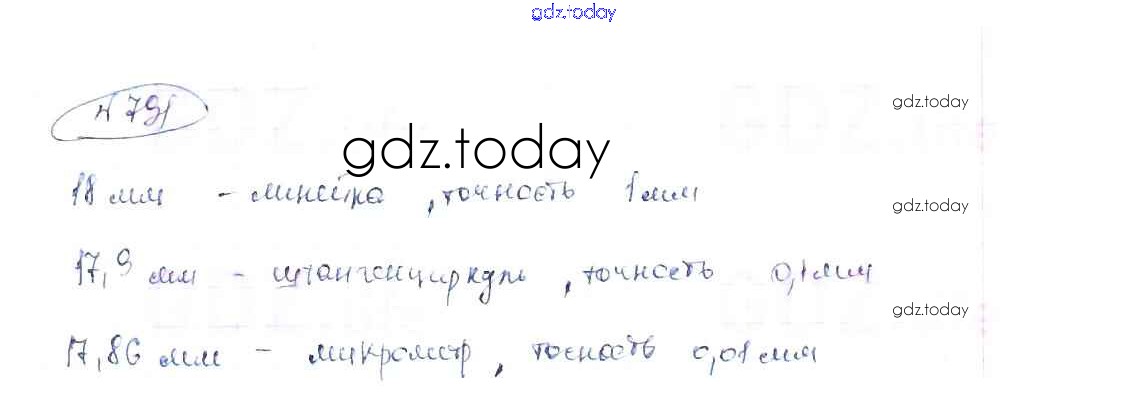 gdz.today
N 791
gdz.today
gdz.today
18 мм - линейка, точность 1 мм
gdz.today
17,9 мм - штангенциркуль, точность 0,1 мм
gdz.today
17,86 мм - микрометр, точность 0,01 мм